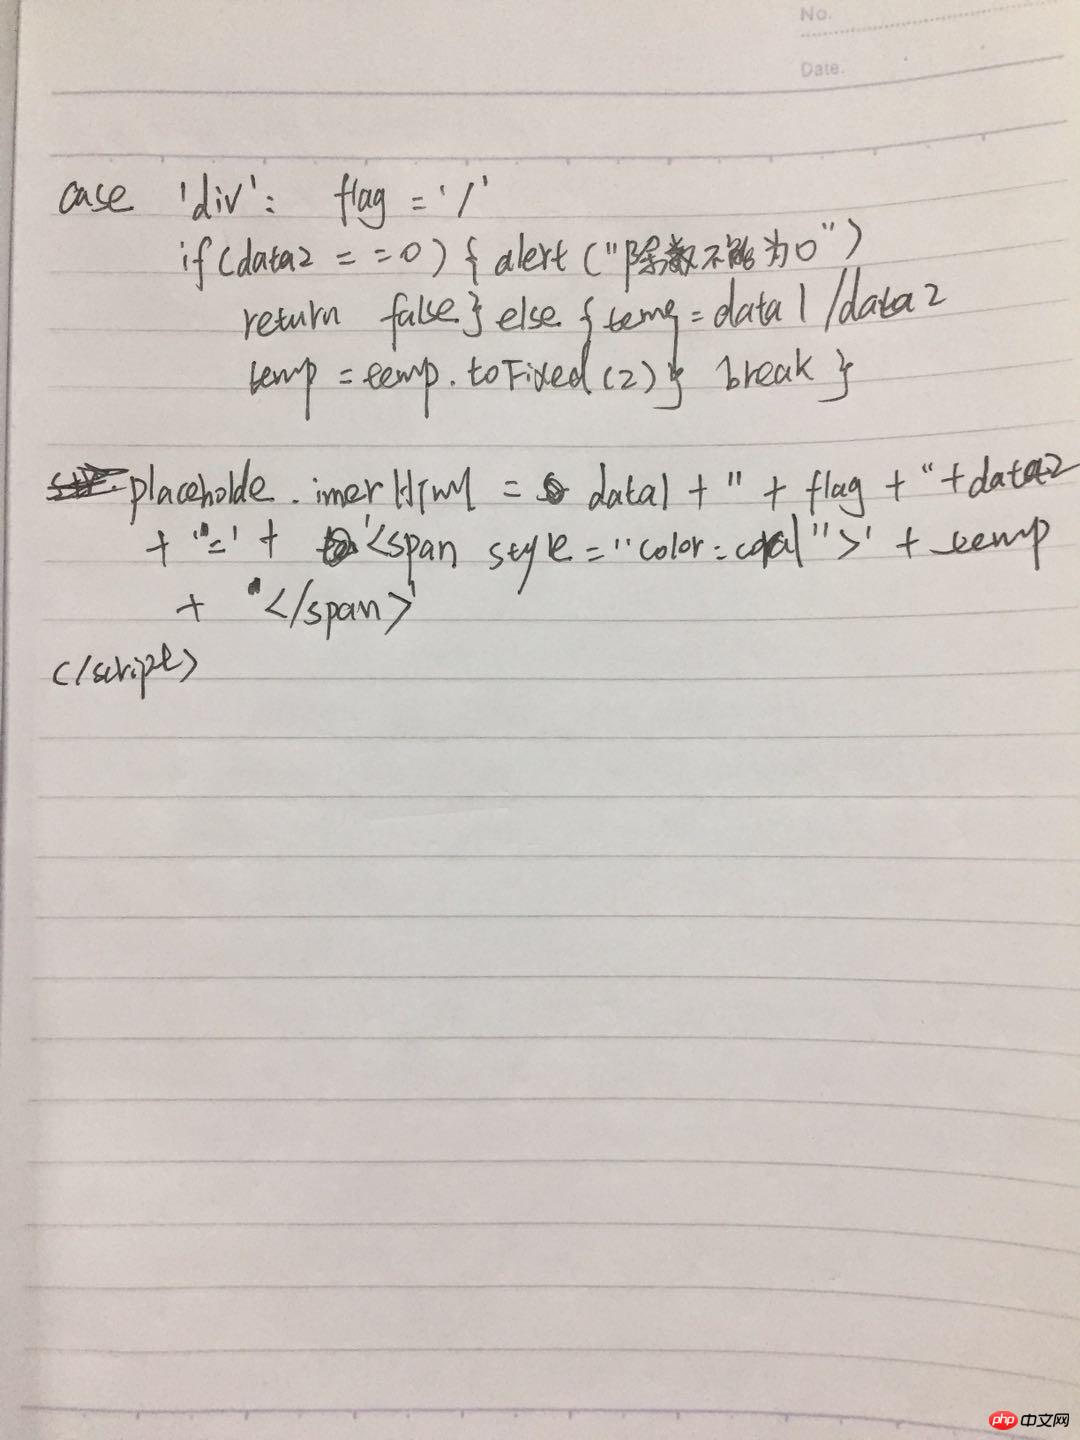 No.
Date.
case 'div': flag = '/'
if(data2 = = =0) { alert ("除数不能为0")
return false } else { temp = data1 /data2
temp = temp . toFixed (2) } break }
placeholde . innerHTML = data1 + " + flag + " + data2
+ '=' + '<span style = "color: coral">' + temp
+ '</span>'
</script>
php 中文网